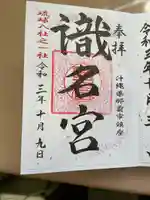 奉拝
沖縄県那覇市鎮座
識名宮
琉球八社之一社
令和三年十月九日
令和三年十